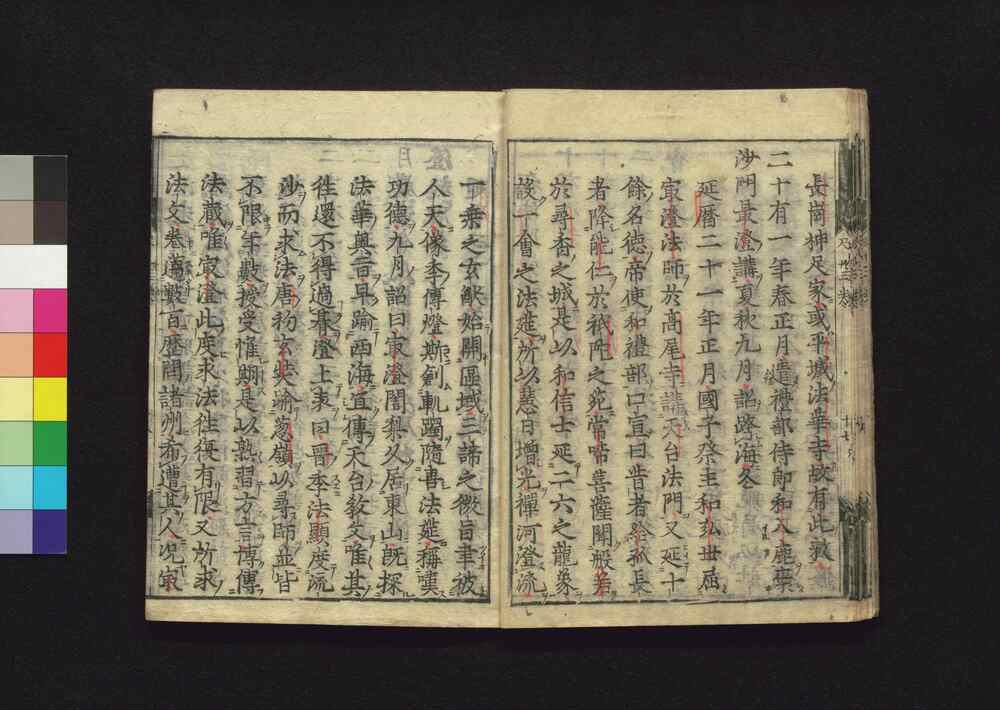 長岡神足家或平城法華寺故有此敕
二十有一年春正月遣禮部侍郎和入鹿禀
沙門最澄講夏秋九月詔跨海
延曆二十一年正月國子祭主和弘世屈
㝡澄法師於高尾寺講天台法門又延十
餘名德帝使和禮部口宣曰昔者給孤長
者降能仁於祇陀之苑常啼菩薩聞般若
於尋香之城是以和信士延二六之龍象
設一會之法筵所以慧日增光禪河澄流
一乘之玄猷始開區域三諦之微旨聿被
人天像季傳燈斯劍軌躅隨喜法筵稱嘆
功德九月詔曰㝡澄闍梨久居東山既探
法華奧旨早踰西海宜傳天台教文唯其
往還不得過春澄上表曰晉季法顯度流
沙而求法唐初玄奘踰葱嶺以尋師並皆
不限年數授受惟期是以熟習方言傳
法藏唯㝡澄此度求法往復有限又所求
法文卷過數百歷問諸州希遭其人况㝡